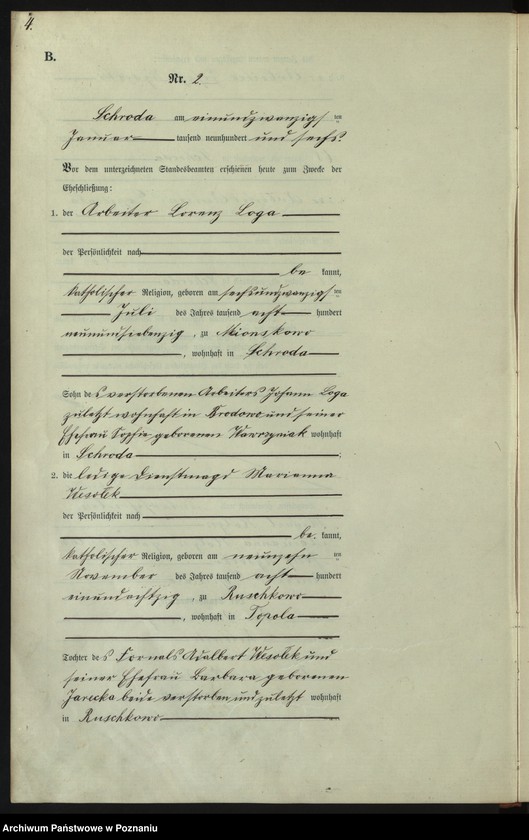 4.
B.
Nr. 2.
Schroda am einundzwanzigsten
Januar tausend neunhundert und sechs.
Vor dem unterzeichneten Standesbeamten erschienen heute zum Zwecke der
Eheschließung:
1. der Arbeiter Lorenz Loga
der Persönlichkeit nach
be kannt,
katholischer Religion, geboren am sechsundzwanzigsten
Juli des Jahres tausend acht hundert
neunundsiebenzig, zu Mionskowo
, wohnhaft in Schroda
Sohn des verstorbenen Arbeiters Johann Loga
zuletzt wohnhaft in Brodowo und seiner
Ehefrau Sophie geborenen Wawrzyniak wohnhaft
in Schroda ;
2. die ledige Dienstmagd Marianna
Wesolek
der Persönlichkeit nach
be kannt,
katholischer Religion, geboren am neunzehnten
November des Jahres tausend acht hundert
einundachtzig, zu Ruschkowo
, wohnhaft in Topola
Tochter des Fornals Adalbert Wesolek und
seiner Ehefrau Barbara geborenen
Jarecka beide verstorben und zuletzt wohnhaft
in Ruschkowo
Archiwum Państwowe w Poznaniu